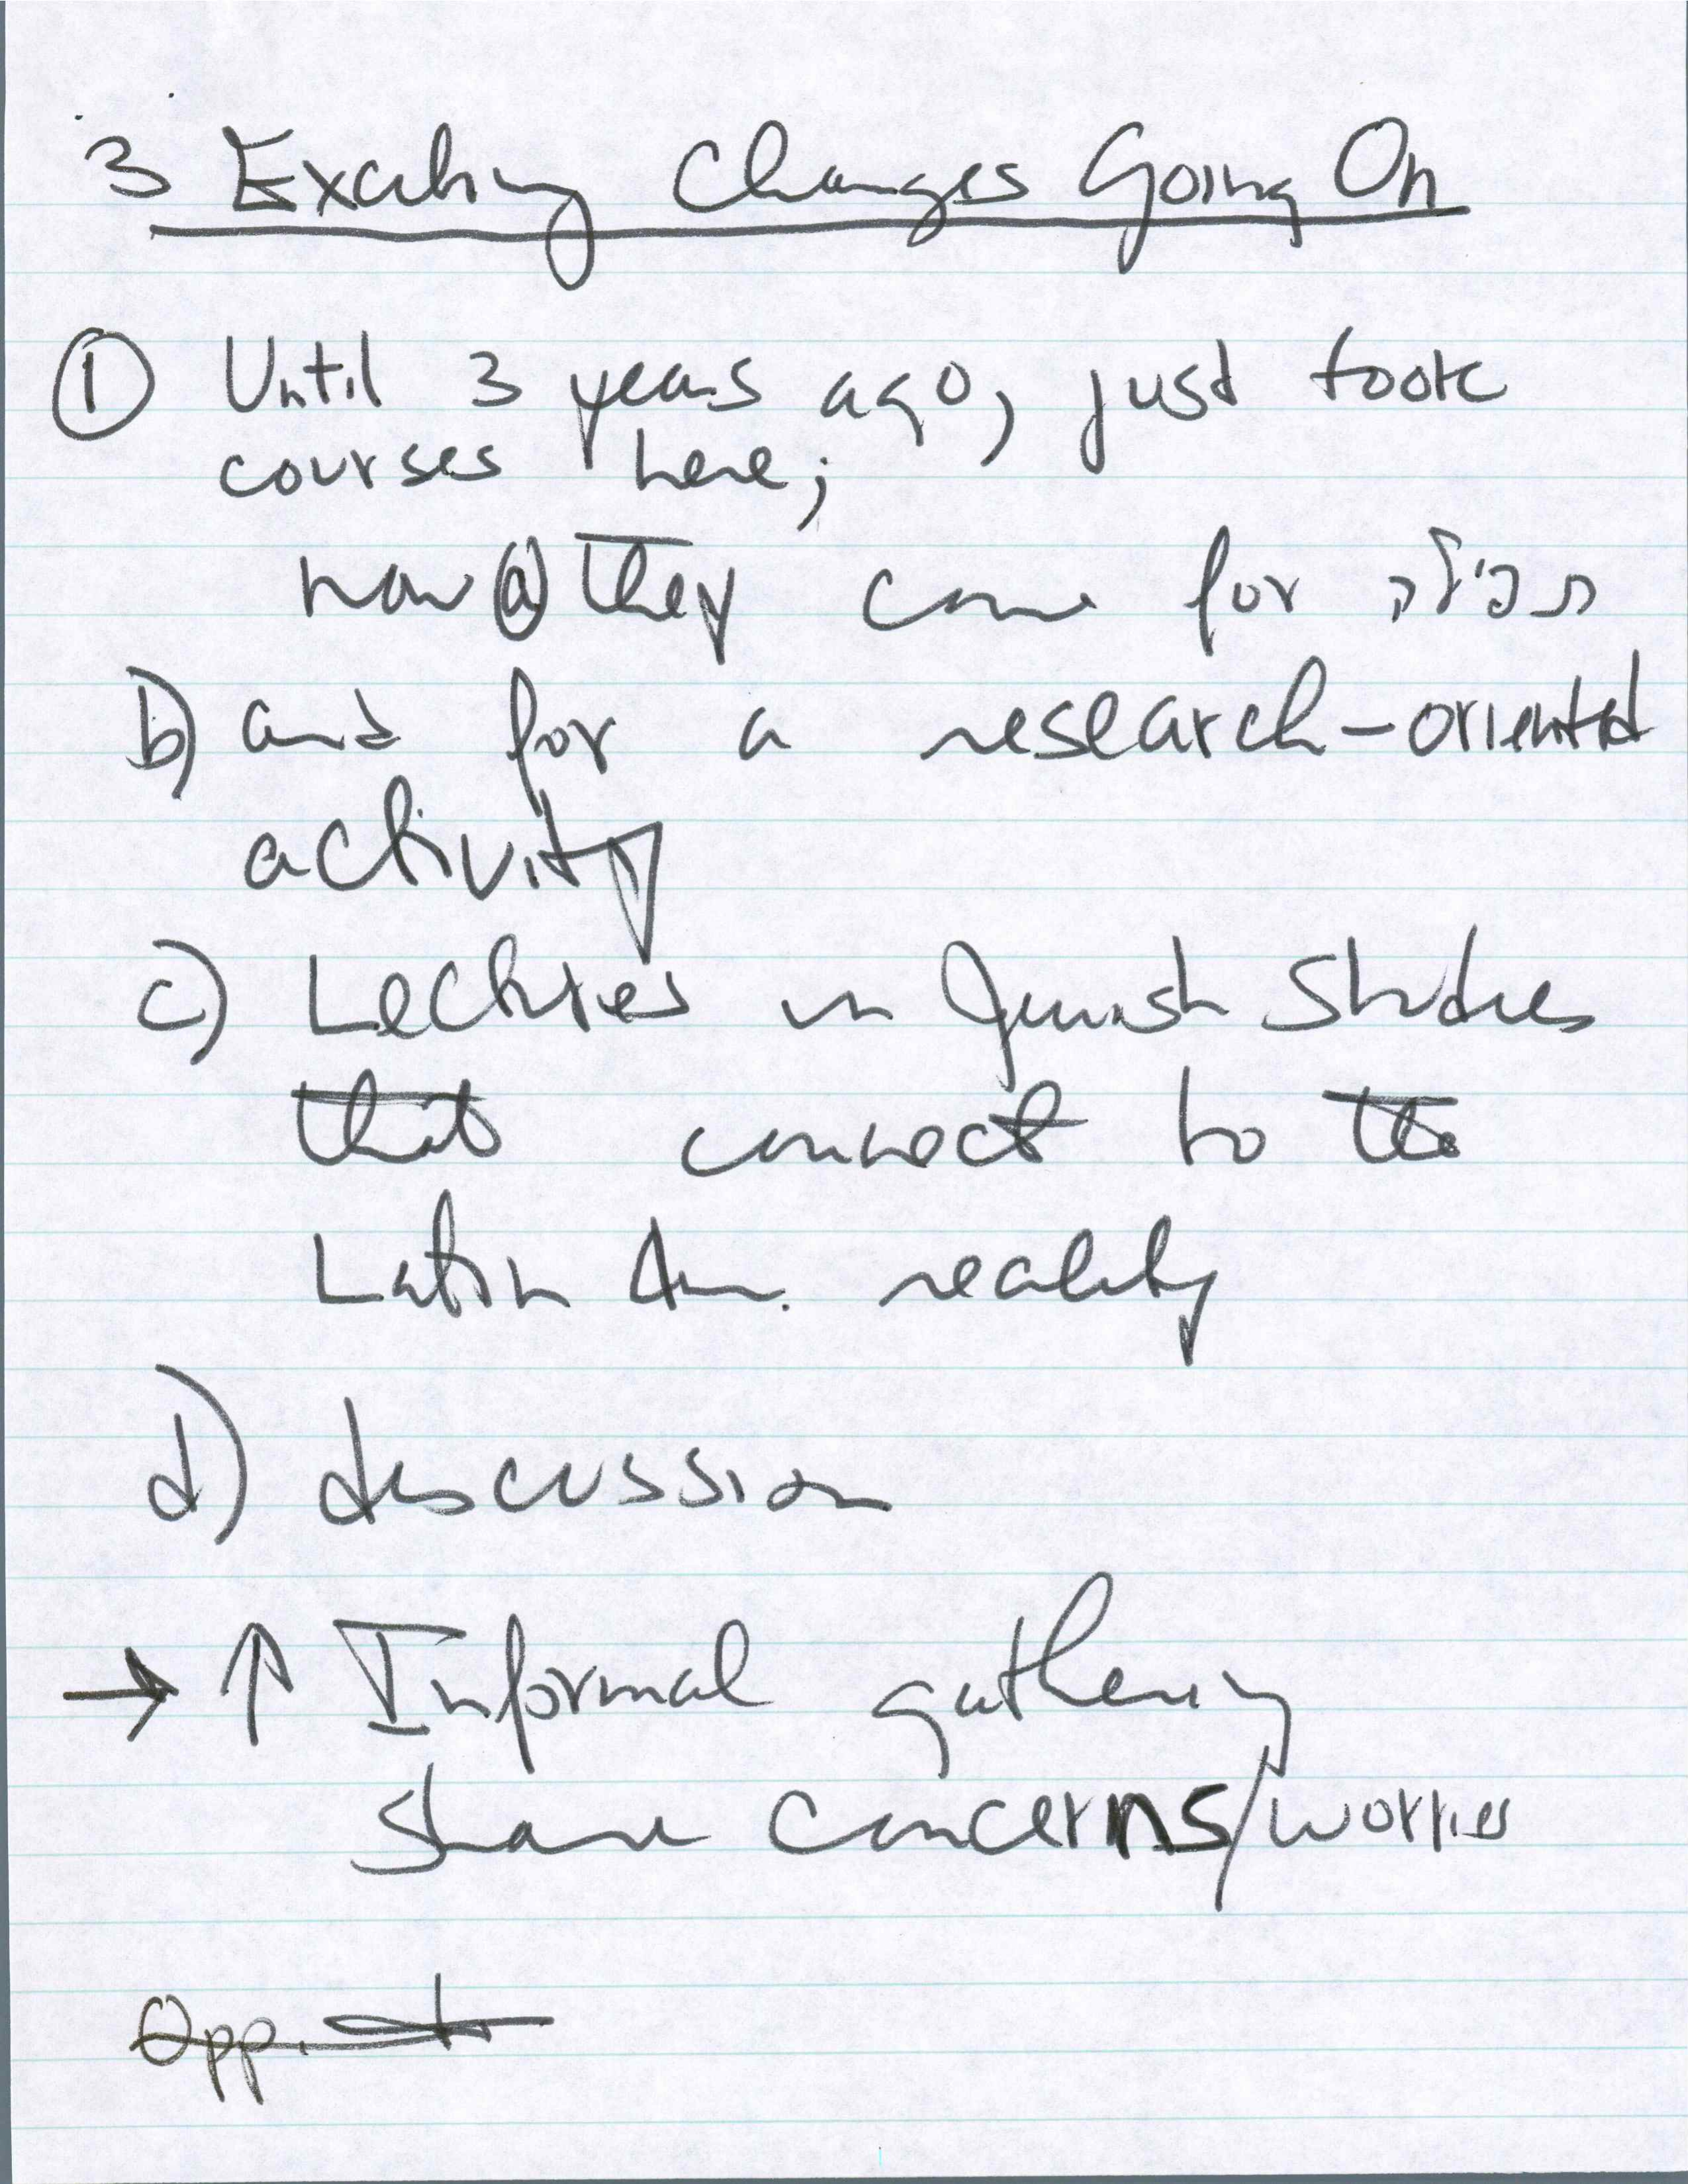 3 Exciting Changes Going On
① Until 3 years ago, just took
courses here;
now ⓐ they come for תפילה
b) and for a research-oriented
activity
c) Lectures in Jewish Studies
that connect to the
Latin Am. reality
d) discussion
→ ↑ Informal gathering
share concerns/worries
Opp.